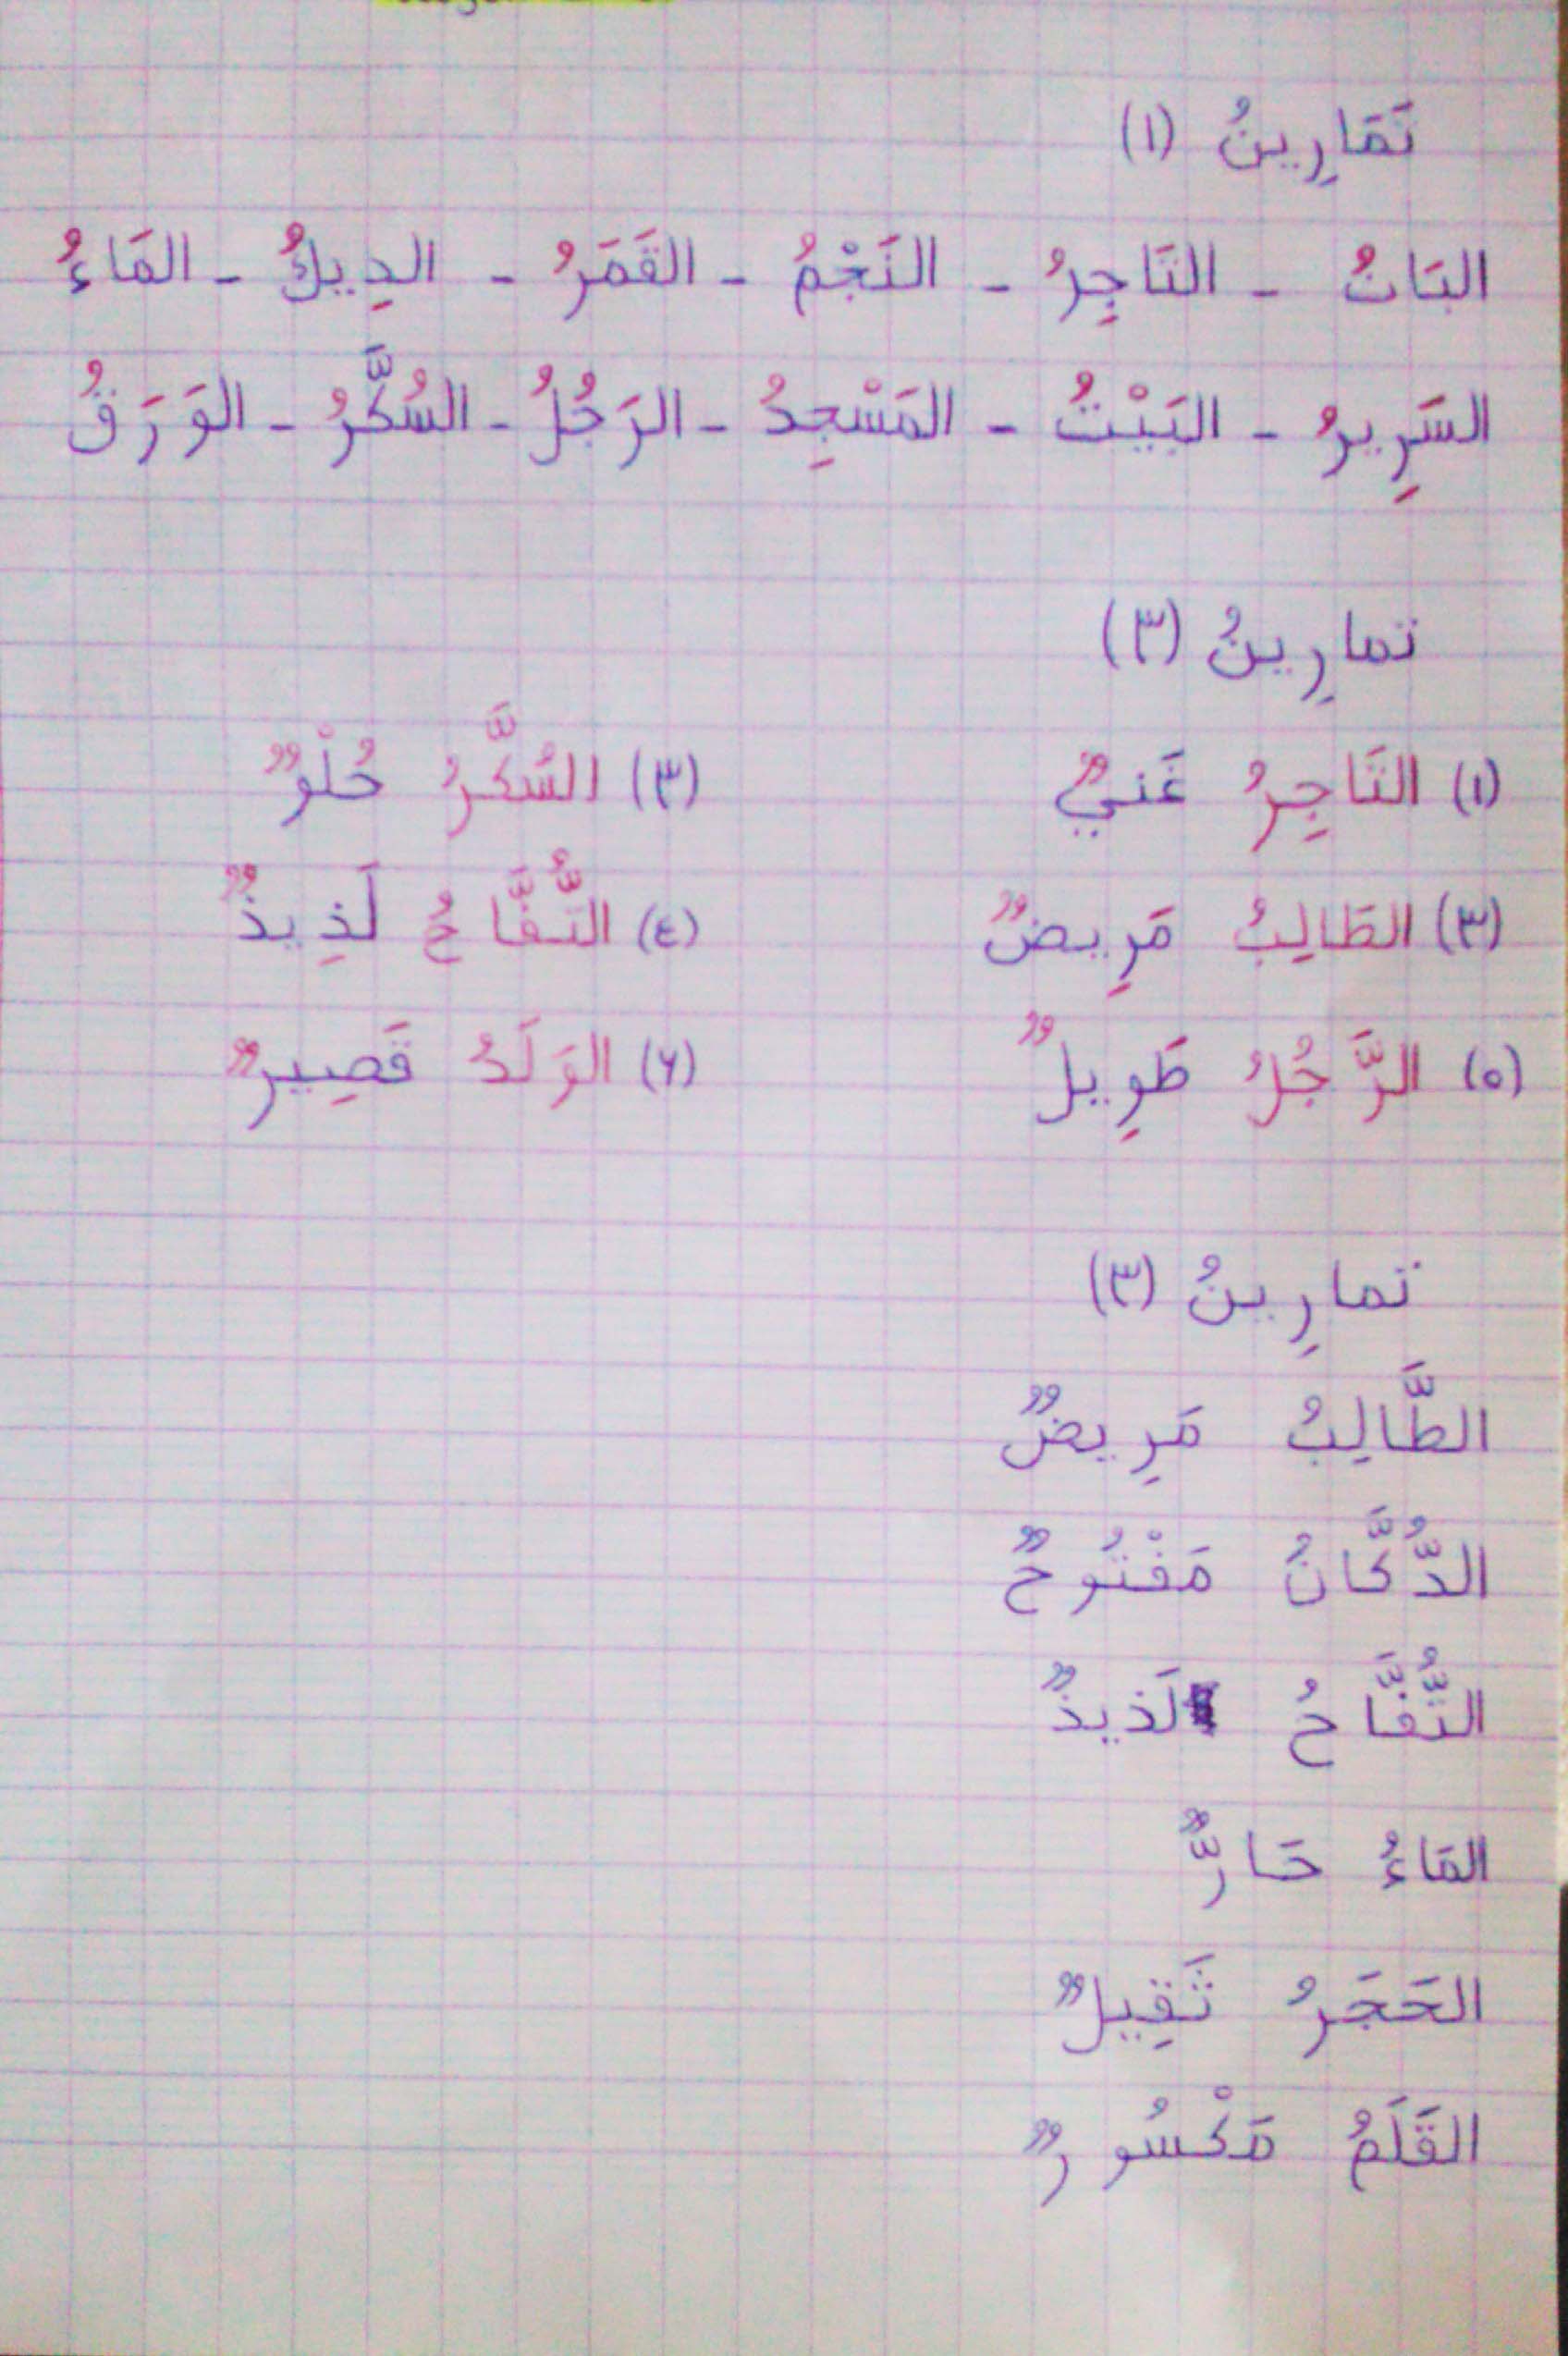 تَمَارِينُ (١)
البَابُ - التَاجِرُ - النَجْمُ - القَمَرُ - الدِيكُ - المَاءُ
السَرِيرُ - البَيْتُ - المَسْجِدُ - الرَجُلُ - السُكَّرُ - الوَرَقُ
تمارِينُ (٢)
(١) التَاجِرُ غَنيٌّ (٣) السُكَّرُ حُلْوٌ
(٢) الطَالِبُ مَرِيضٌ (٤) التُّفَّاحُ لَذِيذٌ
(٥) الرَّجُلُ طَوِيلٌ (٦) الوَلَدُ قَصِيرٌ
تمارِينُ (٣)
الطَّالِبُ مَرِيضٌ
الدُّكَّانُ مَفْتُوحٌ
التُّفَّاحُ لَذيذٌ
المَاءُ حَارٌّ
الحَجَرُ ثَقِيلٌ
القَلَمُ مَكْسُورٌ